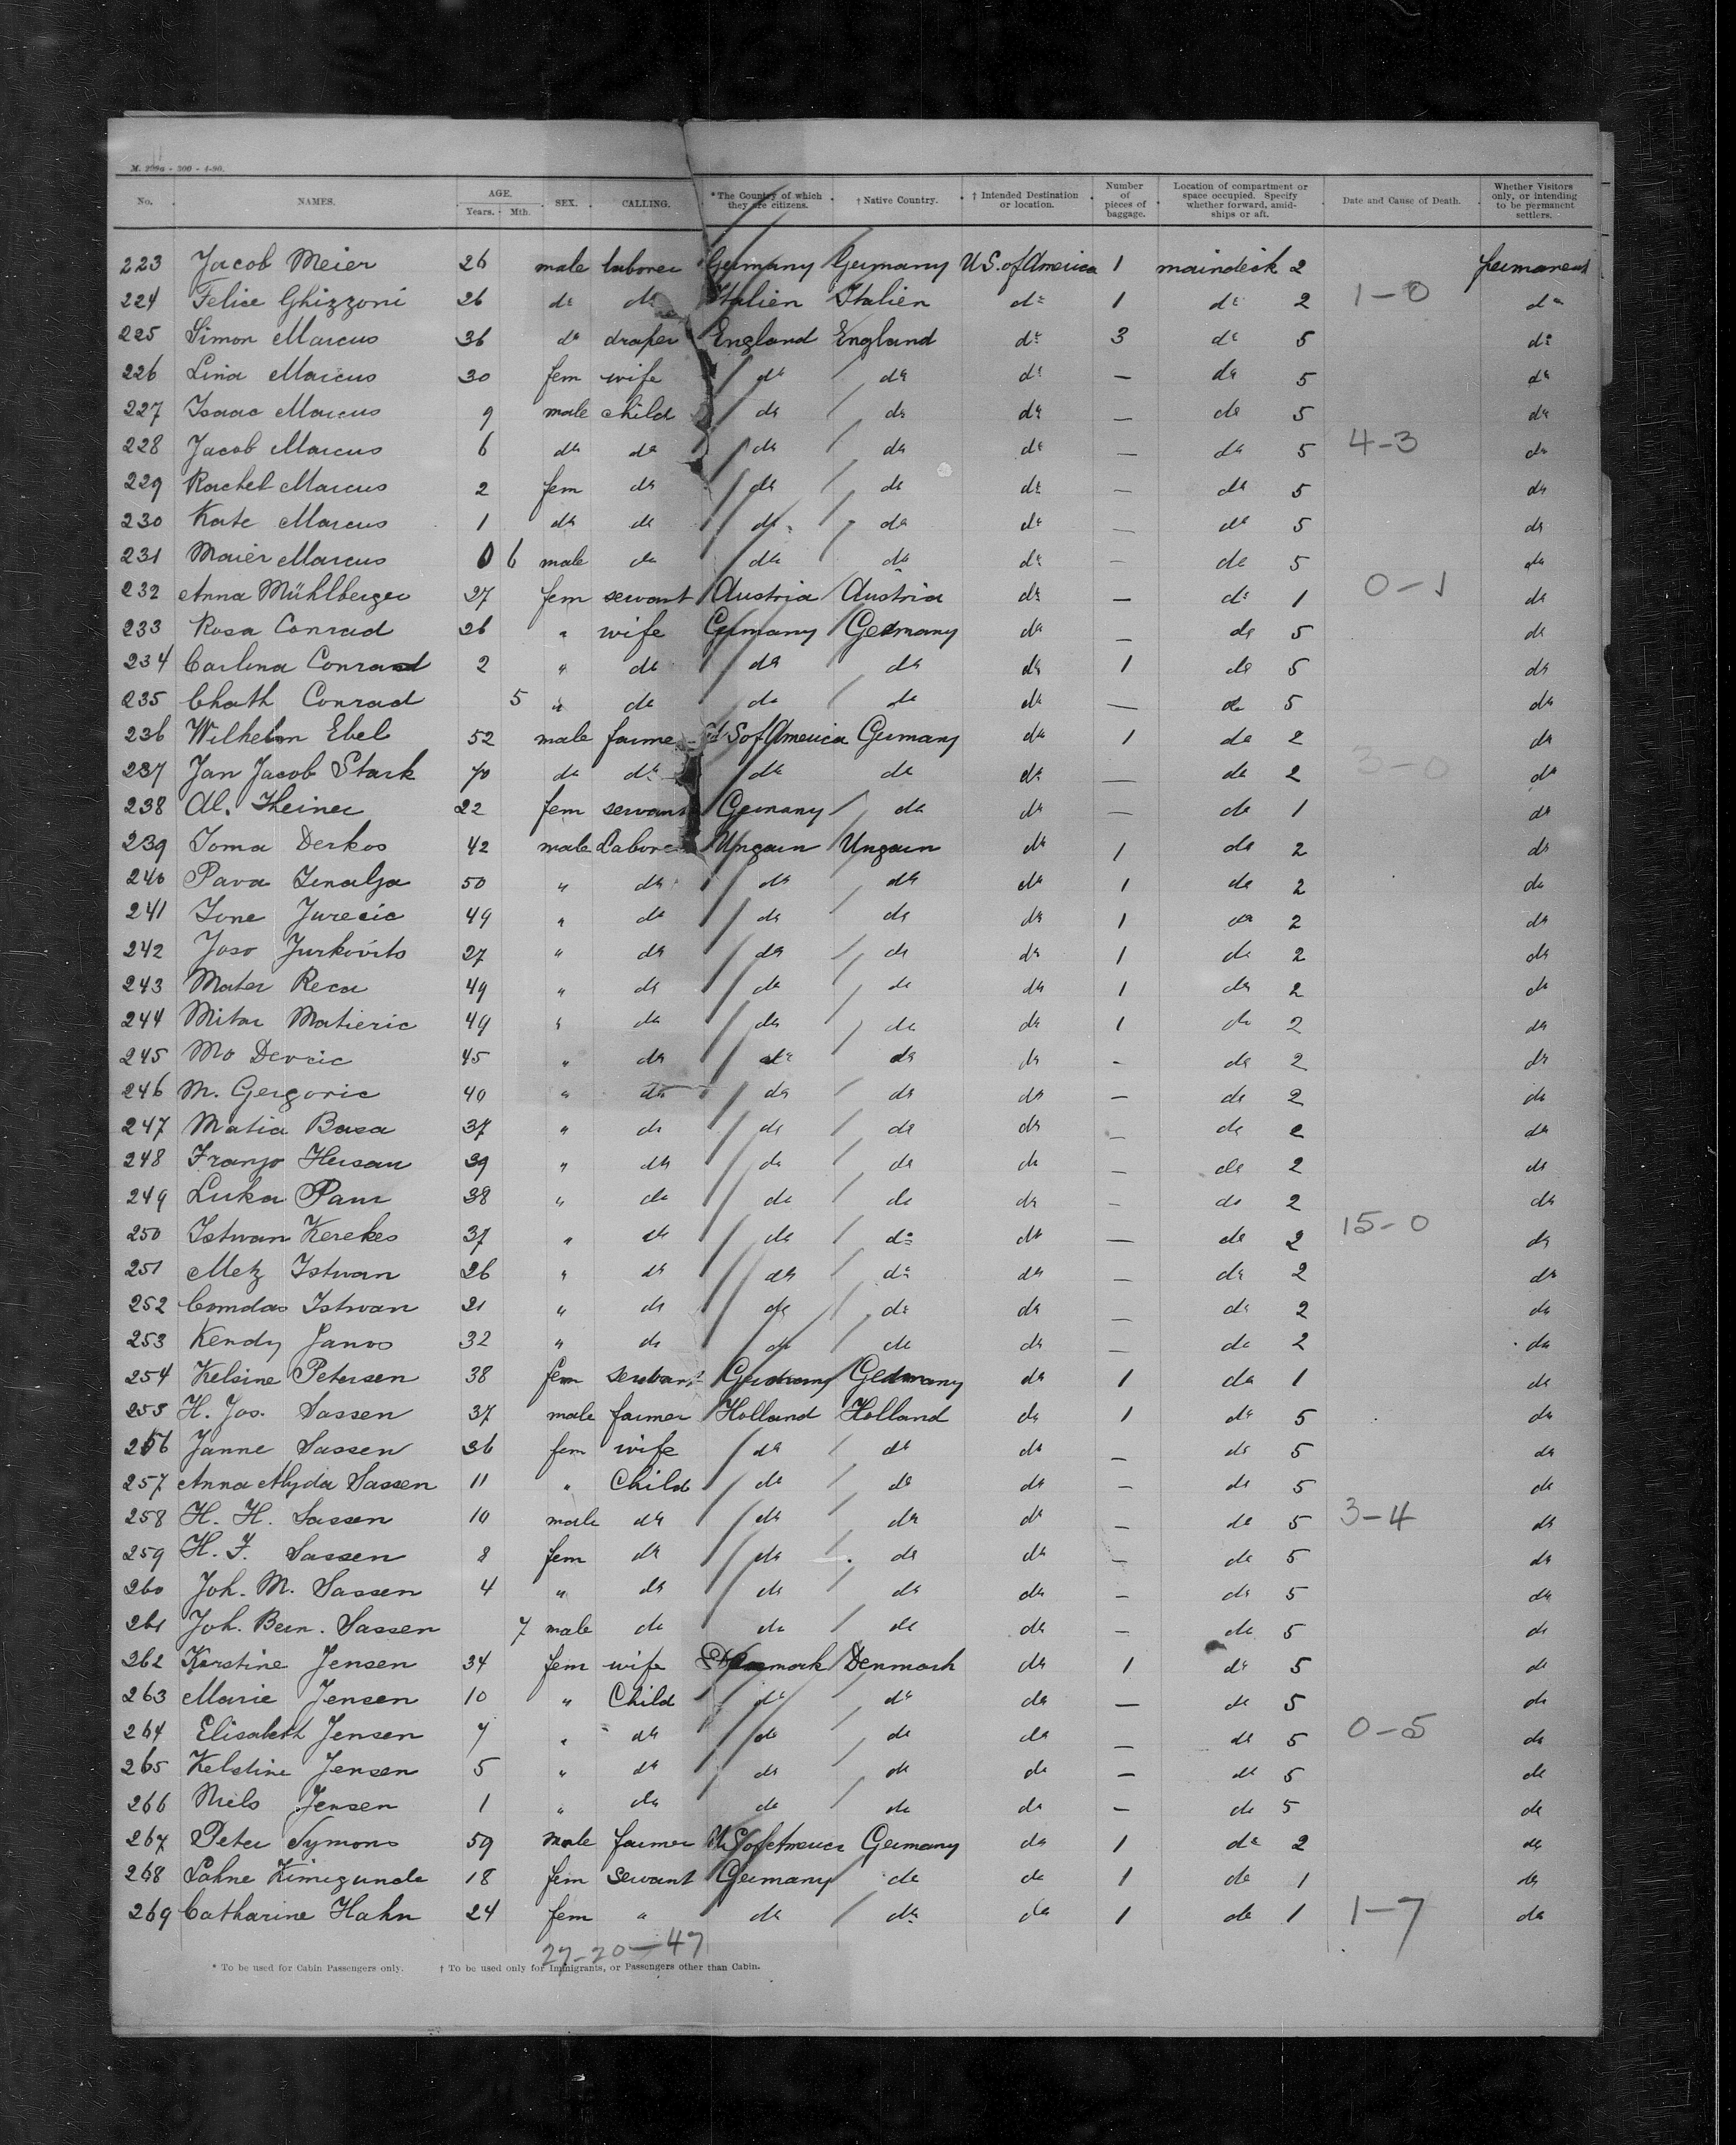 M. 299a - 300 - 4-90.
No. NAMES. AGE. Years. Mth. SEX. CALLING. *The Country of which they are citizens. †Native Country. †Intended Destination or location. Number of pieces of baggage. Location of compartment or space occupied. Specify whether forward, amidships or aft. Date and Cause of Death. Whether Visitors only, or intending to be permanent settlers.
223 Jacob Meier 26 male laborer Germany Germany U.S. of America 1 maindeck 2 permanent
224 Felice Ghizzoni 26 do do Italien Italien do 1 do 2 1-0 do
225 Simon Marcus 36 do draper England England do 3 do 5 do
226 Lina Marcus 30 fem wife do do do — do 5 do
227 Isaac Marcus 9 male child do do do — do 5 do
228 Jacob Marcus 6 do do do do do — do 5 4-3 do
229 Rachel Marcus 2 fem do do do do — do 5 do
230 Kate Marcus 1 do do do do do — do 5 do
231 Maier Marcus 0 6 male do do do do — do 5 do
232 Anna Mühlberger 27 fem servant Austria Austria do — do 1 0-1 do
233 Rosa Conrad 26 " wife Germany Germany do — do 5 do
234 Carlina Conrad 2 " do do do do 1 do 5 do
235 Chath Conrad 5 " do do do do — do 5 do
236 Wilhelm Ebel 52 male farmer U.S of America Germany do 1 do 2 do
237 Jan Jacob Stark 70 do do do do do — do 2 3-0 do
238 Al. Theiner 22 fem servant Germany do do — do 1 do
239 Toma Derkos 42 male Laborer Ungarn Ungarn do 1 do 2 do
240 Pava Tenalja 50 " do do do do 1 do 2 do
241 Tone Jurecic 49 " do do do do 1 do 2 do
242 Joso Jurkovits 27 " do do do do 1 do 2 do
243 Mater Reca 49 " do do do do 1 do 2 do
244 Mitar Matieric 49 " do do do do 1 do 2 do
245 Mo Devcic 45 " do do do do - do 2 do
246 M. Gergoric 40 " do do do do — do 2 do
247 Matia Basa 37 " do do do do — do 2 do
248 Franjo Hersan 39 " do do do do — do 2 do
249 Luka Pam 38 " do do do do - do 2 do
250 Istwan Kerekes 37 " do do do do — do 2 15-0 do
251 Metz Istwan 26 " do do do do — do 2 do
252 Comdas Istwan 21 " do do do do — do 2 do
253 Kendy Janos 32 " do do do do — do 2 do
254 Kelsine Petersen 38 fem servant Germany Germany do 1 do 1 do
255 H. Jos. Sassen 37 male farmer Holland Holland do 1 do 5 do
256 Janne Sassen 36 fem wife do do do — do 5 do
257 Anna Alyda Sassen 11 " Child do do do — do 5 do
258 H. H. Sassen 10 male do do do do — do 5 3-4 do
259 H. F. Sassen 8 fem do do do do — do 5 do
260 Joh. M. Sassen 4 " do do do do — do 5 do
261 Joh. Bern. Sassen 7 male do do do do — do 5 do
262 Kerstine Jensen 34 fem wife Denmark Denmark do 1 do 5 do
263 Marie Jensen 10 " Child do do do — do 5 do
264 Elisabeth Jensen 7 " do do do do — do 5 0-5 do
265 Kelstine Jensen 5 " do do do do — do 5 do
266 Niels Jensen 1 " do do do do — do 5 do
267 Peter Symons 59 male farmer U.S of America Germany do 1 do 2 do
268 Sahne Kinigunde 18 fem servant Germany do do 1 do 1 do
269 Catharine Hahn 24 fem " do do do 1 do 1 1-7 do
27-20-47
* To be used for Cabin Passengers only. † To be used only for Immigrants, or Passengers other than Cabin.